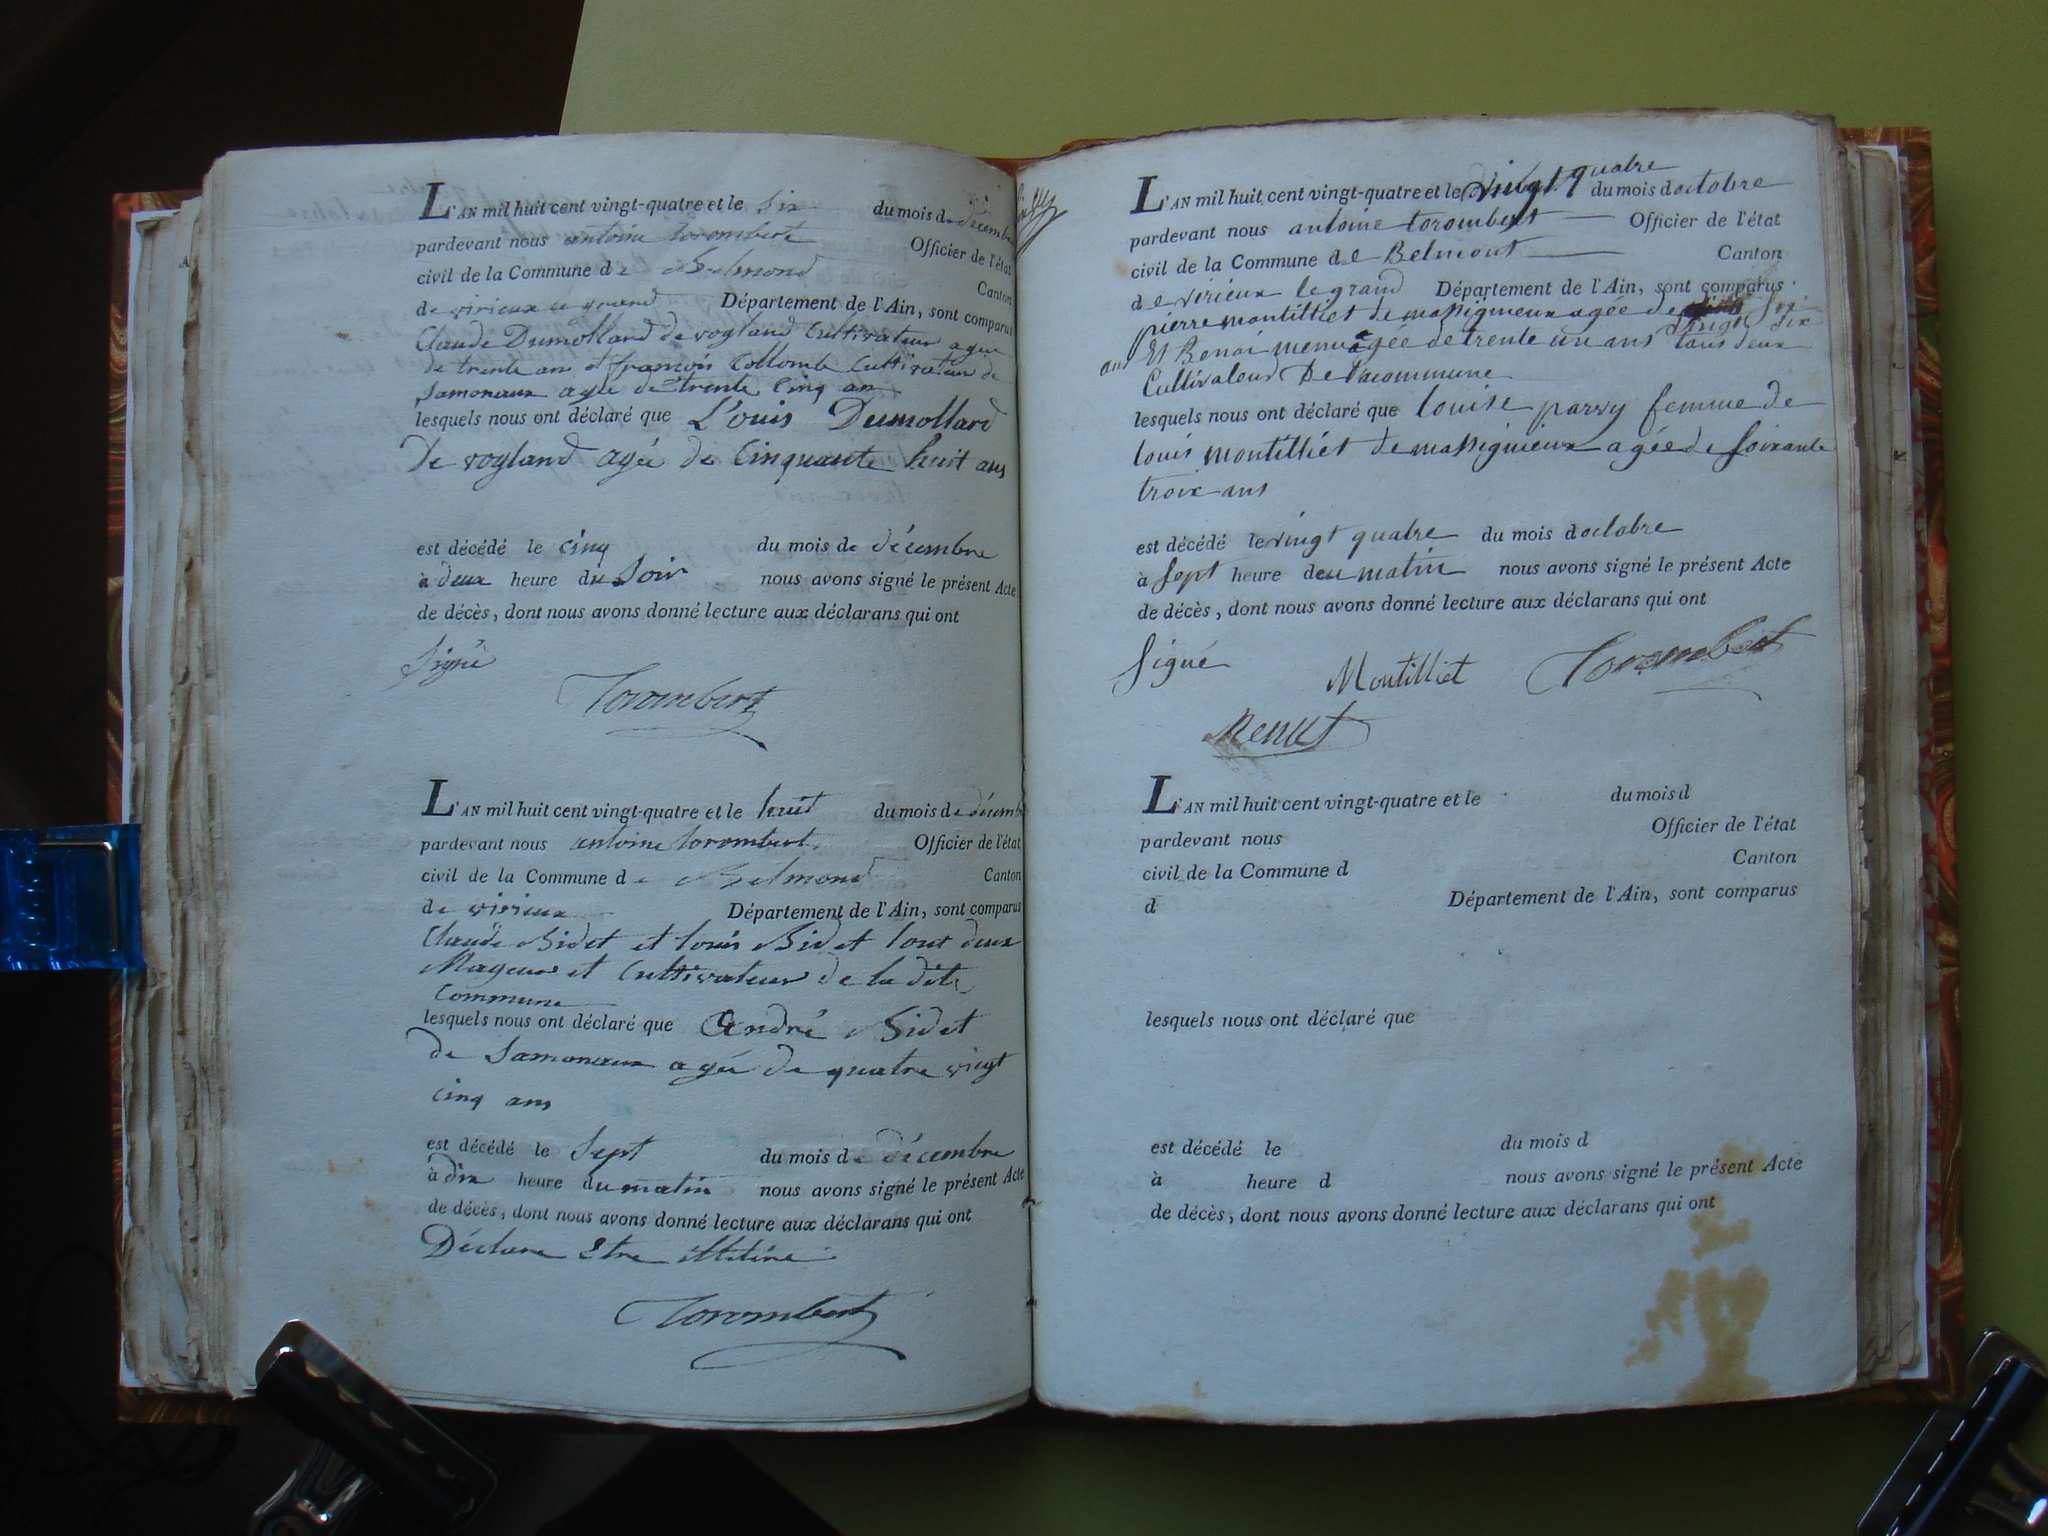 L'AN mil huit cent vingt-quatre et le six du mois de décembre
pardevant nous antoine torombert Officier de l'état
civil de la Commune de Belmond Canton
de virieux le grand Département de l'Ain, sont comparus
Claude Dumollard de vogland Cultivateur agée
de trente ans et françois Collomb Cultivateur de
Samonoux agée de trente Cinq ans
lesquels nous ont déclaré que L'ouis Dumollard
De vogland agée de Cinquante huit ans
est décédé le cinq du mois de décembre
à deux heure du Soir nous avons signé le présent Acte
de décès, dont nous avons donné lecture aux déclarans qui ont
Signé
Torombert
L'AN mil huit cent vingt-quatre et le huit du mois de décembre
pardevant nous antoine torombert Officier de l'état
civil de la Commune de Belmond Canton
de virieux Département de l'Ain, sont comparus
Claude Bidet et louis Bidet tout deux
Mageur et Cultivateur de la dite
Commune
lesquels nous ont déclaré que André Bidet
de Samonoux agée de quatre vingt
cinq ans
est décédé le Sept du mois de décembre
à dix heure du matin nous avons signé le présent Acte
de décès, dont nous avons donné lecture aux déclarans qui ont
Déclare Etre illitéré
Torombert
L'AN mil huit cent vingt-quatre et le vingt quatre du mois d octobre
pardevant nous antoine torombert Officier de l'état
civil de la Commune de Belmont Canton
de virieux le grand Département de l'Ain, sont comparus
pierre montilliet de massignieux agée de vingt six
ans Et Benoi menu agée de trente un ans tous deux
Cultivateur De la commune
lesquels nous ont déclaré que louise parvy femme de
louis montilliet de massignieux agée de soixante
troix ans
est décédé le vingt quatre du mois d octobre
à sept heure deu matin nous avons signé le présent Acte
de décès, dont nous avons donné lecture aux déclarans qui ont
signé Montilliet Torombert
Menut
L'AN mil huit cent vingt-quatre et le du mois d
pardevant nous Officier de l'état
civil de la Commune d Canton
d Département de l'Ain, sont comparus
lesquels nous ont déclaré que
est décédé le du mois d
à heure d nous avons signé le présent Acte
de décès, dont nous avons donné lecture aux déclarans qui ont